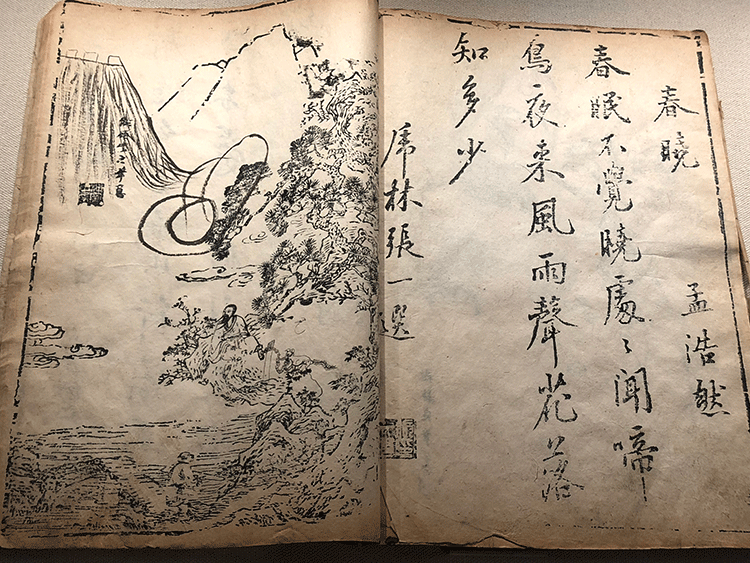 春曉
孟浩然
春眠不覺曉處〻聞啼
鳥夜來風雨聲花落
知多少
虎林張一選